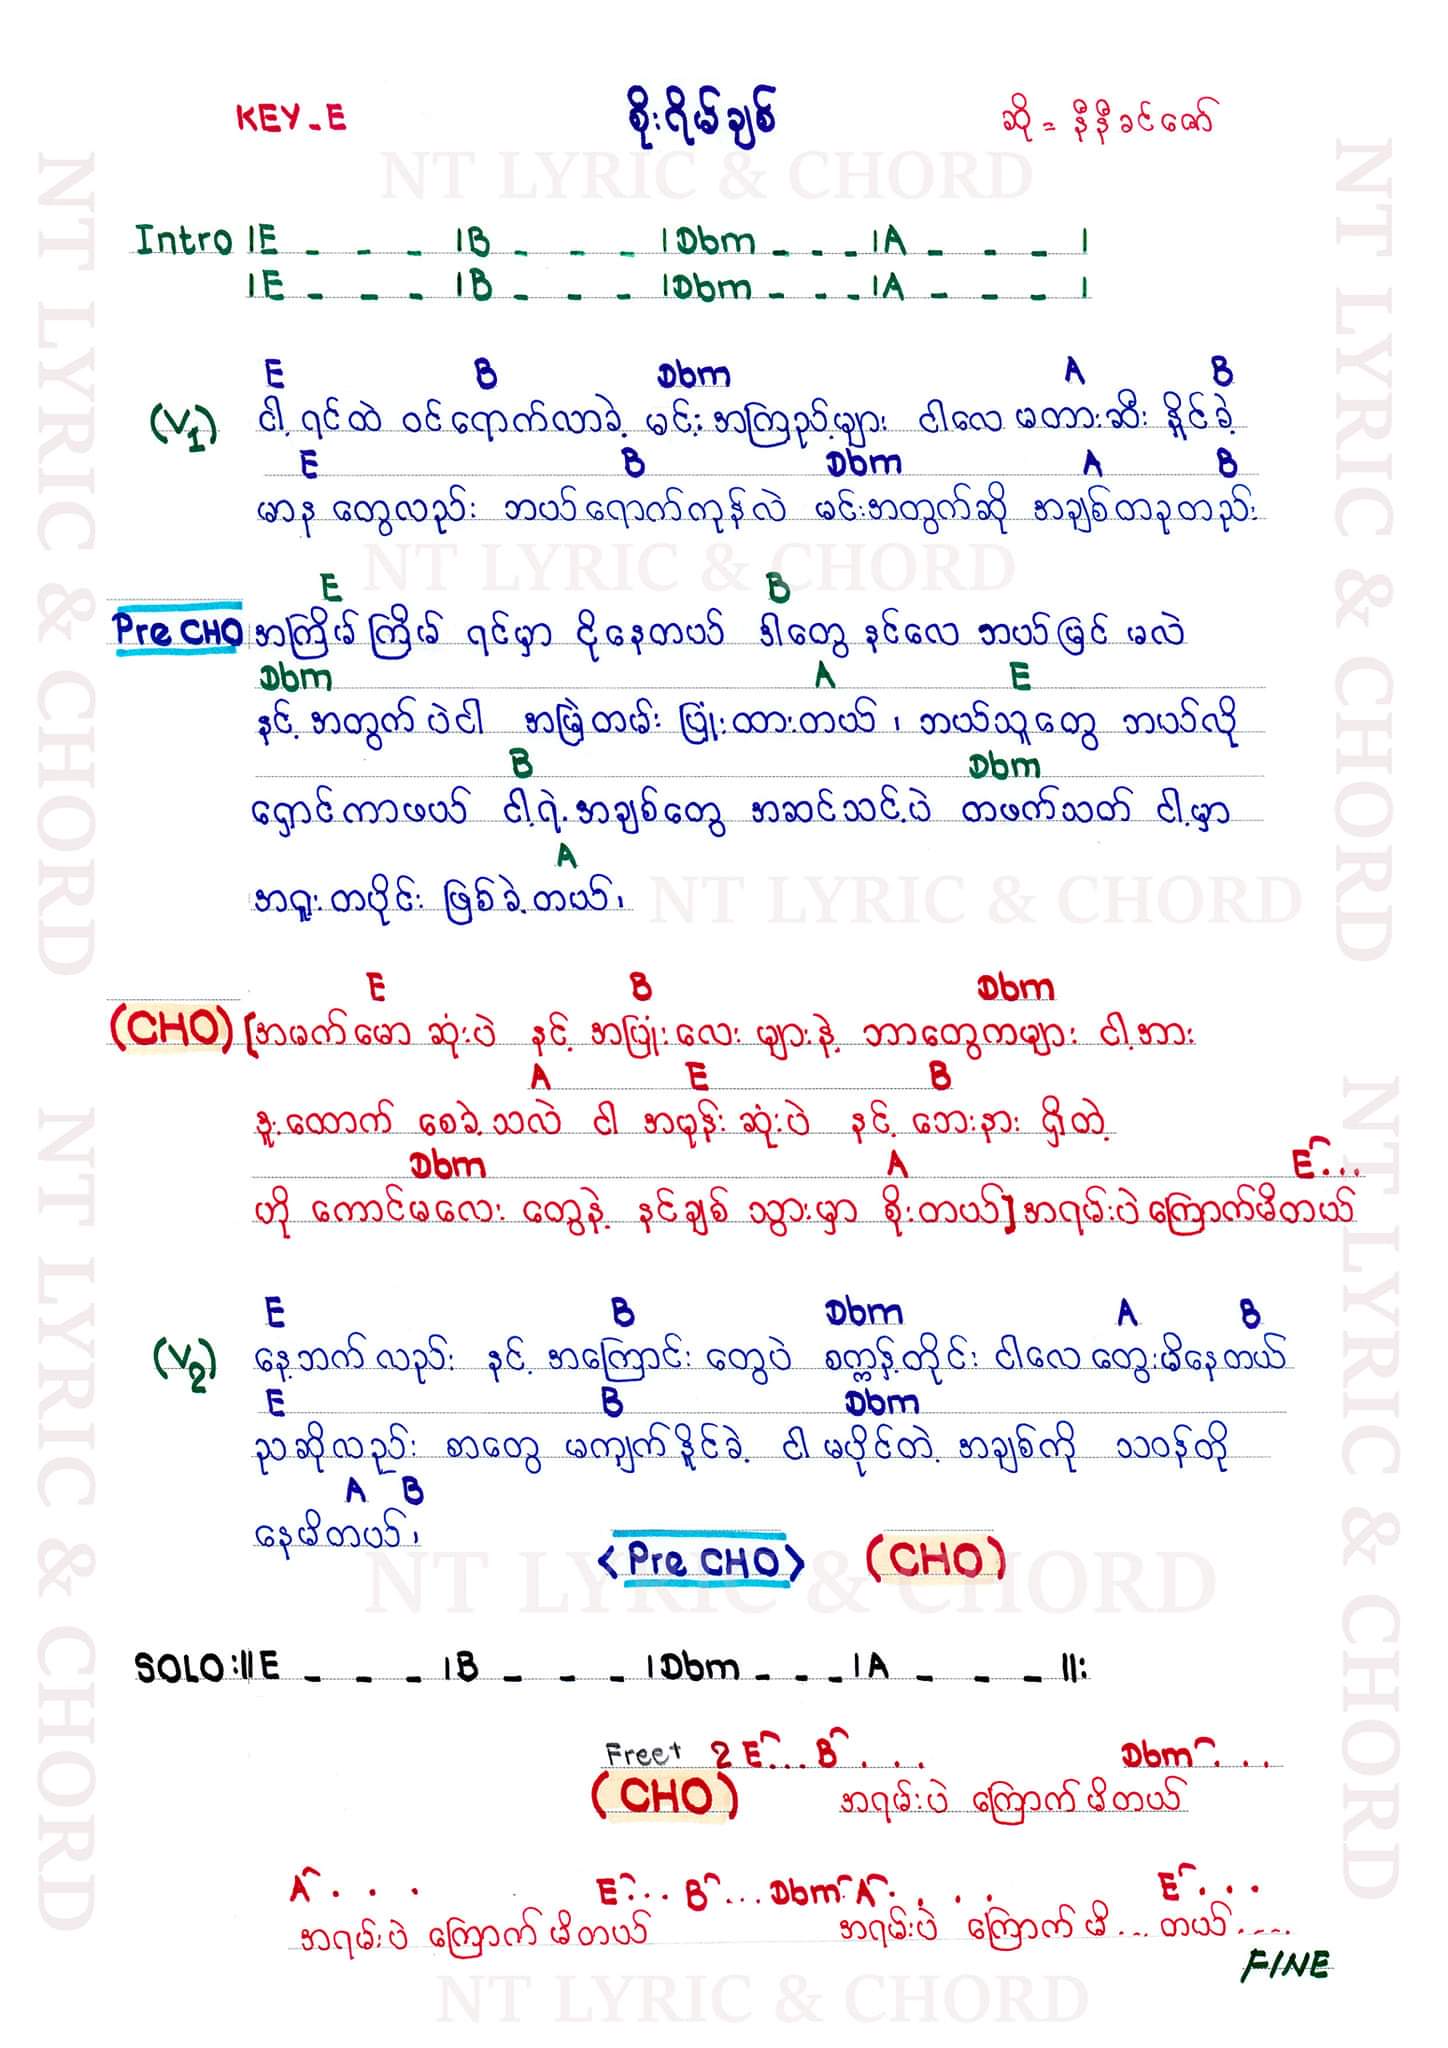 KEY_E စိုးရိမ်ချစ် ဆို = နီနီခင်ဇော်
NT LYRIC & CHORD
Intro |E _ _ _ |B _ _ _ |Dbm _ _ _ |A _ _ _ |
|E _ _ _ |B _ _ _ |Dbm _ _ _ |A _ _ _ |
E B Dbm A B
(V1) ငါ့ ရင်ထဲ ဝင်ရောက်လာခဲ့ မင်း အကြည့်များ ငါလေ မတားဆီး နိူင်ခဲ့
E B Dbm A B
မာန တွေလည်း ဘယ်ရောက်ကုန်လဲ မင်းအတွက်ဆို အချစ်တခုတည်း
NT LYRIC & CHORD
E B
Pre CHO အကြိမ်ကြိမ် ရင်မှာ ငိုနေတယ် ဒါတွေ နင်လေ ဘယ်မြင် မလဲ
Dbm A E
နင့် အတွက် ပဲငါ အမြဲတမ်း ပြုံးထားတယ်၊ ဘယ်သူတွေ ဘယ်လို
B Dbm
ရှောင်ကာဖယ် ငါ့ရဲ့အချစ်တွေ အဆင်သင့်ပဲ တဖက်သတ် ငါ့မှာ
A
အရူးတပိုင်း ဖြစ်ခဲ့တယ်၊
NT LYRIC & CHORD
E B Dbm
(CHO) [အမက်မော ဆုံးပဲ နင့် အပြုံးလေး များနဲ့ ဘာတွေကများ ငါ့အား
A E B
နှူးထောက် စေခဲ့သလဲ ငါ အမုန်း ဆုံးပဲ နင့် ဘေးနား ရှိတဲ့
Dbm A E...
ဟို ကောင်မလေး တွေနဲ့ နင်ချစ် သွားမှာ စိုးတယ်]အရမ်းပဲကြောက်မိတယ်
E B Dbm A B
(V2) နေ့ဘက် လည်း နင့် အကြောင်း တွေပဲ စက္ကန့်တိုင်း ငါလေ တွေးမိနေတယ်
E B Dbm
ညဆိုလည်း စာတွေ မကျက်နိူင်ခဲ့ ငါ မပိုင်တဲ့ အချစ်ကို သဝန်တို
A B
နေမိတယ်၊
<Pre CHO> (CHO)
NT LYRIC & CHORD
SOLO :||E _ _ _ |B _ _ _ |Dbm _ _ _ |A _ _ _ ||:
Free+ 2 E... B... Dbm...
(CHO) အရမ်းပဲ ကြောက်မိတယ်
A... E... B... Dbm A..... E...
အရမ်းပဲ ကြောက်မိတယ် အရမ်းပဲ ကြောက်မိ... တယ်....
FINE
NT LYRIC & CHORD
NT LYRIC & CHORD
NT LYRIC & CHORD
NT LYRIC & CHORD
NT LYRIC & CHORD